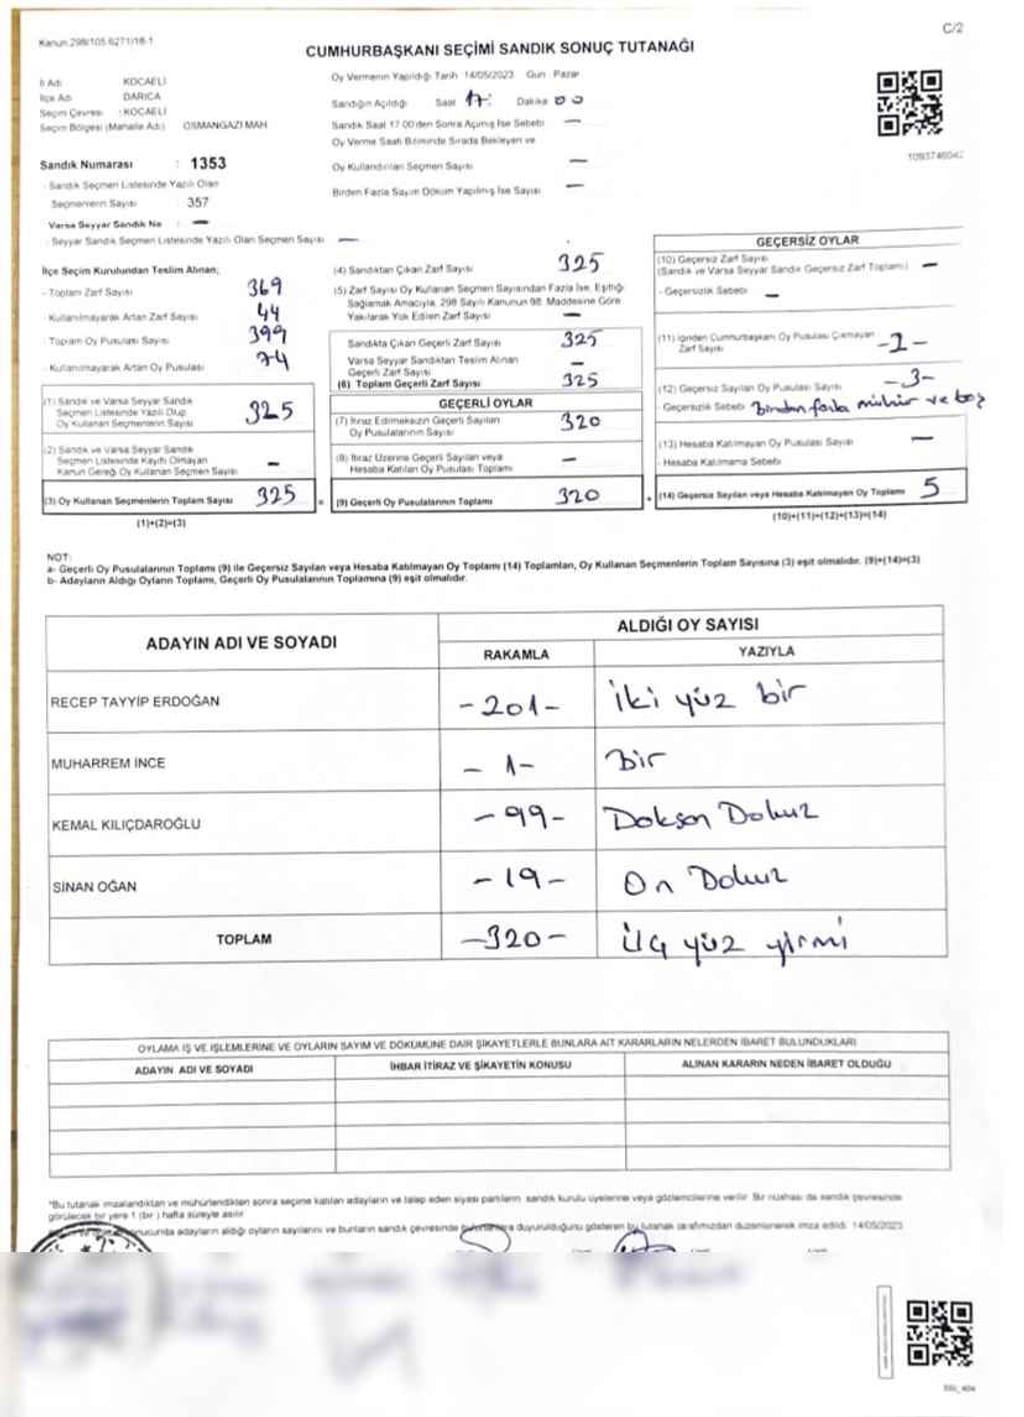 Kanun:298/105 6271/18-1
C/2
CUMHURBAŞKANI SEÇİMİ SANDIK SONUÇ TUTANAĞI
İl Adı : KOCAELİ
İlçe Adı : DARICA
Seçim Çevresi : KOCAELİ
Seçim Bölgesi (Mahalle Adı) OSMANGAZİ MAH
Sandık Numarası : 1353
- Sandık Seçmen Listesinde Yazılı Olan
Seçmenlerin Sayısı : 357
Varsa Seyyar Sandık No : —
- Seyyar Sandık Seçmen Listesinde Yazılı Olan Seçmen Sayısı —
Oy Vermenin Yapıldığı Tarih 14/05/2023 Gün : Pazar
Sandığın Açıldığı Saat 17: Dakika 00
Sandık Saat 17.00'den Sonra Açılmış İse Sebebi —
Oy Verme Saati Bitiminde Sırada Bekleyen ve
Oy Kullandırılan Seçmen Sayısı —
Birden Fazla Sayım Döküm Yapılmış İse Sayısı —
1093746042
İlçe Seçim Kurulundan Teslim Alınan;
- Toplam Zarf Sayısı 369
- Kullanılmayarak Artan Zarf Sayısı 44
- Toplam Oy Pusulası Sayısı 399
- Kullanılmayarak Artan Oy Pusulası 74
(1) Sandık ve Varsa Seyyar Sandık
Seçmen Listesinde Yazılı Olup
Oy Kullanan Seçmenlerin Sayısı 325
(2) Sandık ve Varsa Seyyar Sandık
Seçmen Listesinde Kayıtlı Olmayan
Kanun Gereği Oy Kullanan Seçmen Sayısı —
(3) Oy Kullanan Seçmenlerin Toplam Sayısı 325 =
(1)+(2)=(3)
(4) Sandıktan Çıkan Zarf Sayısı 325
(5) Zarf Sayısı Oy Kullanan Seçmen Sayısından Fazla İse, Eşitliği
Sağlamak Amacıyla, 298 Sayılı Kanunun 98. Maddesine Göre
Yakılarak Yok Edilen Zarf Sayısı —
Sandıkta Çıkan Geçerli Zarf Sayısı 325
Varsa Seyyar Sandıktan Teslim Alınan
Geçerli Zarf Sayısı —
(6) Toplam Geçerli Zarf Sayısı 325
GEÇERLİ OYLAR
(7) İtiraz Edilmeksizin Geçerli Sayılan
Oy Pusulalarının Sayısı 320
(8) İtiraz Üzerine Geçerli Sayılan veya
Hesaba Katılan Oy Pusulası Toplamı —
(9) Geçerli Oy Pusulalarının Toplamı 320 +
GEÇERSİZ OYLAR
(10) Geçersiz Zarf Sayısı
(Sandık ve Varsa Seyyar Sandık Geçersiz Zarf Toplamı) —
- Geçersizlik Sebebi —
(11) İçinden Cumhurbaşkanı Oy Pusulası Çıkmayan
Zarf Sayısı
(12) Geçersiz Sayılan Oy Pusulası Sayısı -3-
- Geçersizlik Sebebi Birden fazla mühür ve boş
(13) Hesaba Katılmayan Oy Pusulası Sayısı —
- Hesaba Katılmama Sebebi
(14) Geçersiz Sayılan veya Hesaba Katılmayan Oy Toplamı 5
(10)+(11)+(12)+(13)=(14)
NOT:
a- Geçerli Oy Pusulalarının Toplamı (9) ile Geçersiz Sayılan veya Hesaba Katılmayan Oy Toplamı (14) Toplamları, Oy Kullanan Seçmenlerin Toplam Sayısına (3) eşit olmalıdır. (9)+(14)=(3)
b- Adayların Aldığı Oyların Toplamı, Geçerli Oy Pusulalarının Toplamına (9) eşit olmalıdır.
ADAYIN ADI VE SOYADI
ALDIĞI OY SAYISI
RAKAMLA YAZIYLA
RECEP TAYYİP ERDOĞAN -201- İki yüz bir
MUHARREM İNCE -1- Bir
KEMAL KILIÇDAROĞLU -99- Doksan Dokuz
SİNAN OĞAN -19- On Dokuz
TOPLAM -320- Üç yüz yirmi
OYLAMA İŞ VE İŞLEMLERİNE VE OYLARIN SAYIM VE DÖKÜMÜNE DAİR ŞİKAYETLERLE BUNLARA AİT KARARLARIN NELERDEN İBARET BULUNDUKLARI
ADAYIN ADI VE SOYADI İHBAR İTİRAZ VE ŞİKAYETİN KONUSU ALINAN KARARIN NEDEN İBARET OLDUĞU
*Bu tutanak imzalandıktan ve mühürlendikten sonra seçime katılan adayların ve talep eden siyasi partilerin sandık kurulu üyelerine veya gözlemcilerine verilir. Bir nüshası da sandık çevresinde
görülecek bir yere 1 (bir) hafta süreyle asılır.
sonucunda adayların aldığı oyların sayılarını ve bunların sandık çevresinde duyurulduğunu gösteren bu tutanak tarafımızdan düzenlenerek imza edildi. 14/05/2023